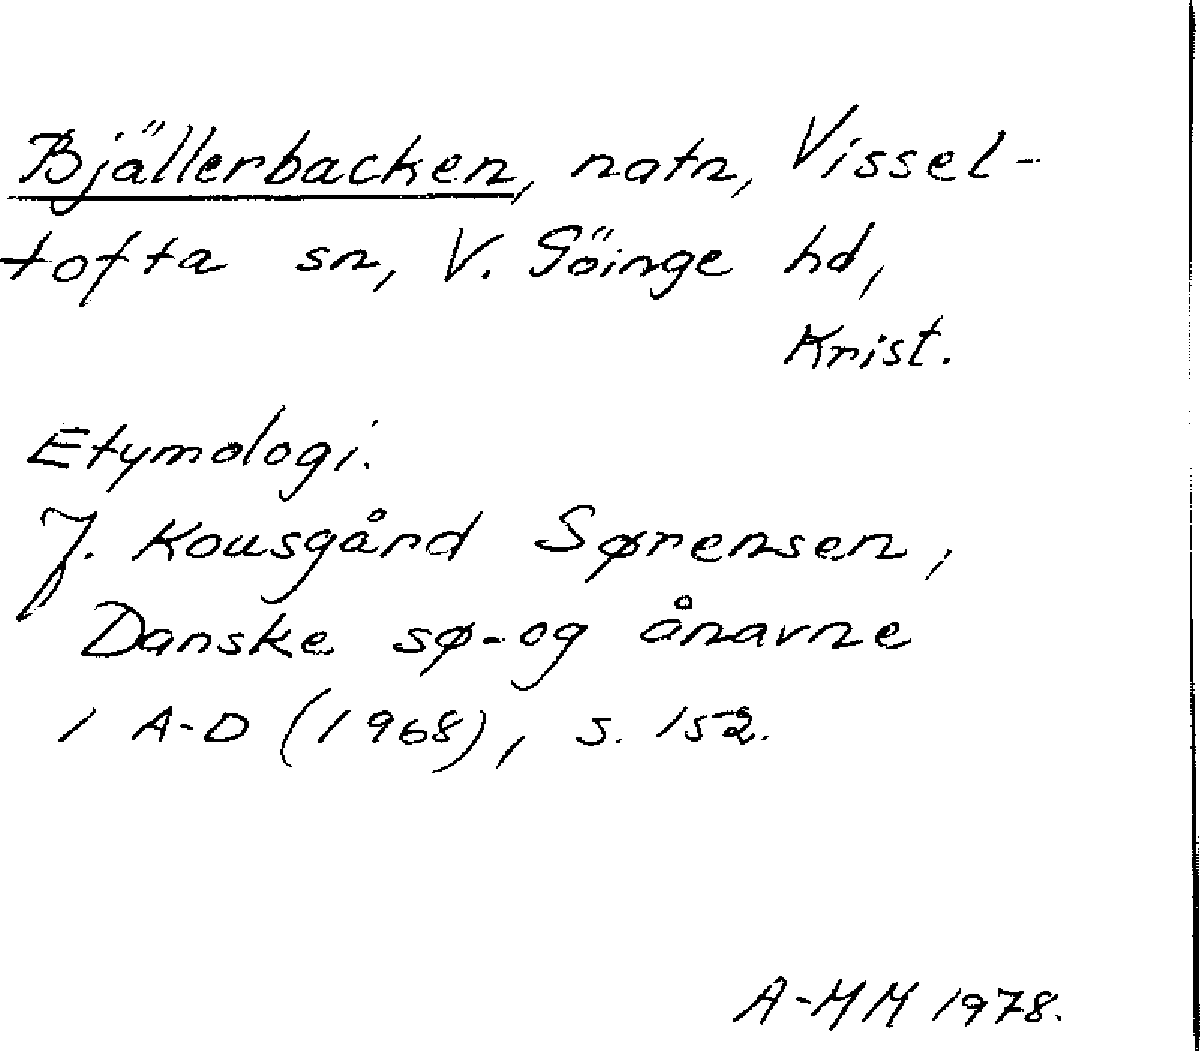 Bjällerbacken, natn, Vissel-
tofta sn, V. Göinge hd,
Krist.
Etymologi.
J. Kousgård Sørensen,
Danske sø- og ånavne
1 A-D (1968), s. 152.
A-MM 1978.